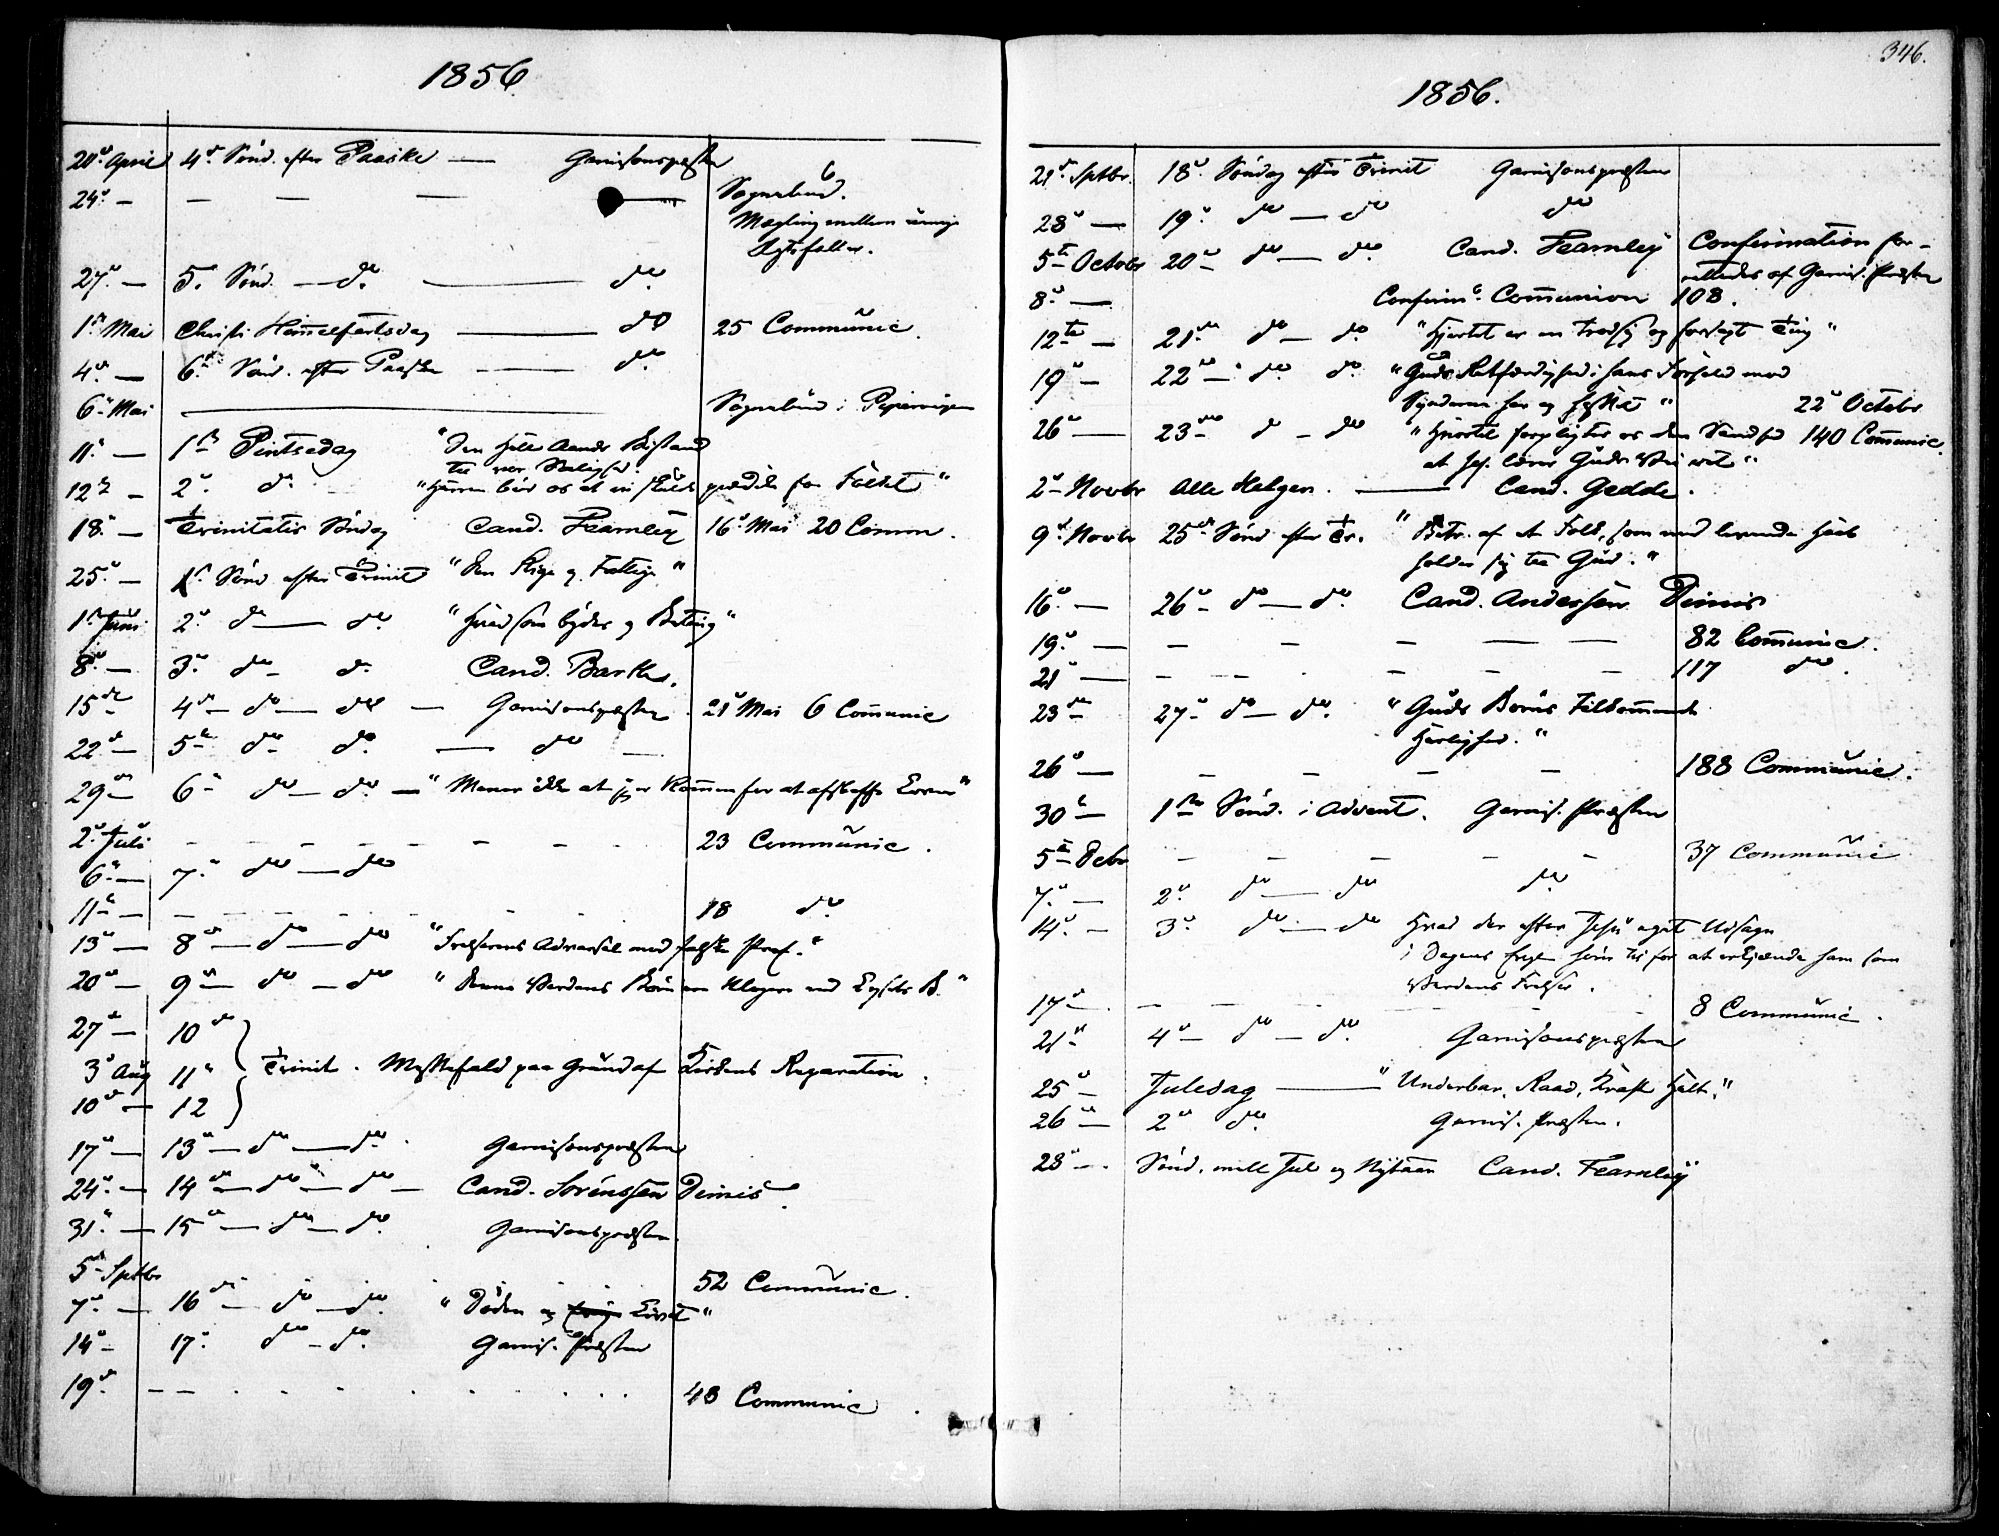 1856
20de April 4de Sønd. efter Paaske — Garnisonspræsten
24de — — — — Sognebud.
Mægling mellem uenige
Ægtefoller.
27de — 5te Sønd. — do. — do.
1ste Mai Christi Himmelfartsdag — do 25 Communic.
4de — 6te Sønd. efter Paaske — do.
6te Mai — Sognebud i Pipervigen
11te — 1ste Pintsedag "Den Hell. Aands Bistand
til vor Salighed.
12te — 2den do. "Herren bød os at vi skulde prædike for Folket"
18de — Trinitatis Søndag Cand. Fearnley 16de Mai 20 Comm.
25de — 1ste Sønd. efter Trinit "Den Rige og Fattige"
1ste Juni 2den do — do. "Hvad som byder og Betung"
8de — 3die do — do. Cand. Barth.
15de 4de — do — do — Garnisonspræsten. 21de Mai 6 Communic
22de — 5te do do. — do —
29de 6te do — do. — "Mener ikke at jeg er kommen for at afskaffe Loven"
2den Juli — — — — 23 Communic.
6te — 7de do — do
11te — — — — 18 do.
13de — 8de — do — do "Frelserens Advarsel mod falske Prof."
20de — 9de — do — do "Denne Verdens Børn ere klogere end Lysets B."
27de — 10de
3die Aug 11te Trinit. Messefald paa Grund af Kirkens Reparation.
10de — 12
17de — 13de — do — do. Garnisonspræsten
24de — 14de — do — do — Cand. Sörenssen Dimis.
31te — 15de — do — do. Garnisonspræsten.
5te Septbr 52 Communic.
7de — 16de — do — do. "Døden og Livet"
14de — 17de do — do. Garnis. Præsten
19de. — — — — 48 Communic.
346.
1856.
21de Septbr. 18de Søndag efter Trinit Garnisonspræsten
28de — 19de do — do do
5te Octobr 20de do — do. Cand. Fearnley Confirmation for-
rettedes af Garnis. Præsten
8de — Confirm. Communion 108.
12te — 21de do — do. "Hjertet er en trodsig og forsagt Ting"
19de — 22de — do. do. "Guds Retfærdighed i hans Forhold mod
Synderne her og hisset" 22de Octobr
26de — 23de do — do "Hvortil forpligter os den Sandhed 140 Communic.
at Jes. lærer Guds Vei ret"
2den Novbr Alle Helgen. — Cand. Gedde.
9de Novbr 25de Sønd. efter Tr. "Betr. af et Folk, som med levende Haab
holder sig til Gud."
16de — 26de — do — do. Cand. Anderssen Dimis
19de — — — — 82 Communic.
21de — — — — 117 do.
23de 27de do — do. "Guds Børns tilkommende
Herlighed."
26de — — — — 188 Communic.
30te — 1ste Sønd. i Advent. Garnis. Præsten
5te Decbr — — — — 37 Communic
7de — 2den do — do do.
14de — 3die do — do Hvad der efter Jesu eget Udsagn
i Dagens Evgl. hører til for at erkjende ham som
Verdens Frelser.
17de — — — — 8 Communic.
21de 4de do — do. Garnisonspræsten
25de — Juledag — "Underbar, Raad, Kraft Helt."
26de — 2den do. Garnis. Præsten.
28de — Sønd. mell Jul og Nytaar Cand. Fearnley